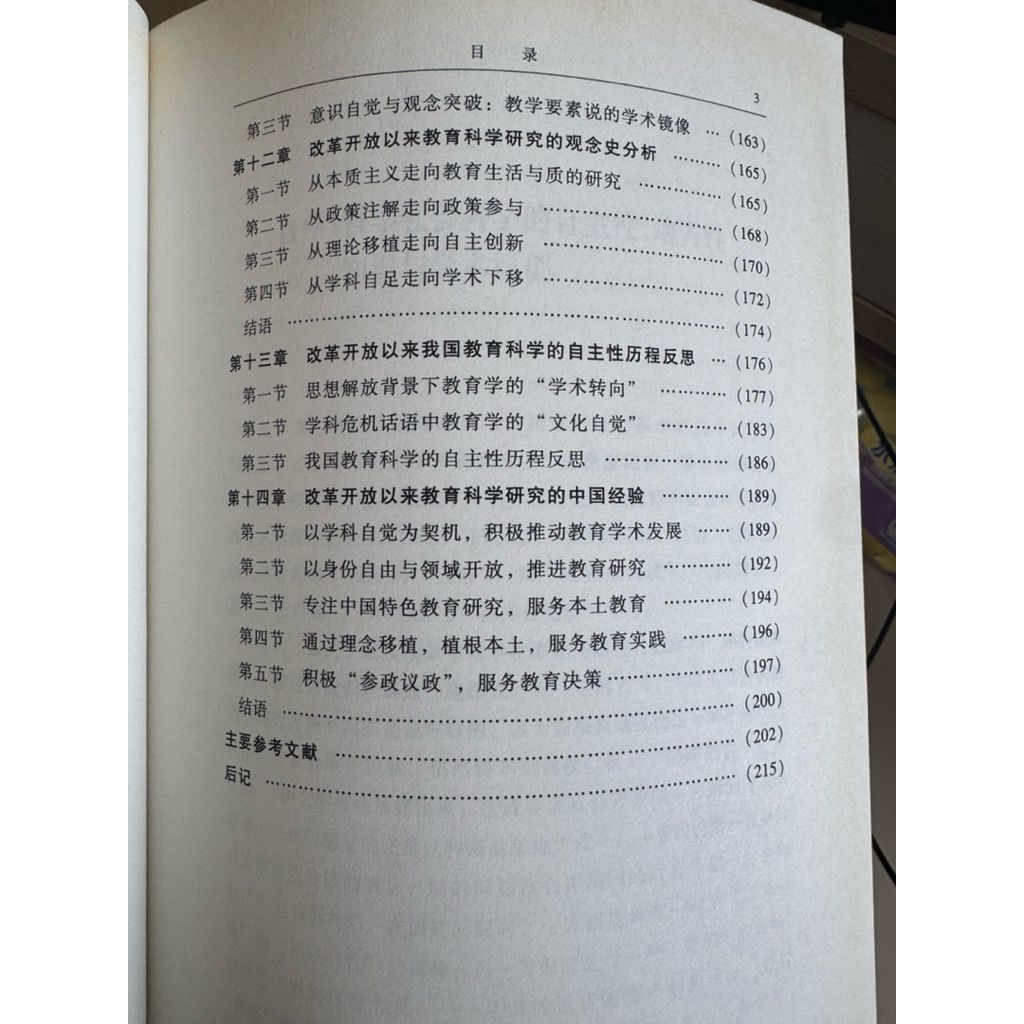 目 录
3
第三节 意识自觉与观念突破：教学要素说的学术镜像 …（163）
第十二章 改革开放以来教育科学研究的观念史分析 ………（165）
第一节 从本质主义走向教育生活与质的研究 ……………（165）
第二节 从政策注解走向政策参与 ……………………………（168）
第三节 从理论移植走向自主创新 ……………………………（170）
第四节 从学科自足走向学术下移 ……………………………（172）
结语 ……………………………………………………………………（174）
第十三章 改革开放以来我国教育科学的自主性历程反思 …（176）
第一节 思想解放背景下教育学的“学术转向” ……………（177）
第二节 学科危机话语中教育学的“文化自觉” …………（183）
第三节 我国教育科学的自主性历程反思 …………………（186）
第十四章 改革开放以来教育科学研究的中国经验 …………（189）
第一节 以学科自觉为契机，积极推动教育学术发展 ……（189）
第二节 以身份自由与领域开放，推进教育研究 …………（192）
第三节 专注中国特色教育研究，服务本土教育 …………（194）
第四节 通过理念移植，植根本土，服务教育实践 ………（196）
第五节 积极“参政议政”，服务教育决策 …………………（197）
结语 ……………………………………………………………………（200）
主要参考文献 …………………………………………………………（202）
后记 ……………………………………………………………………（215）